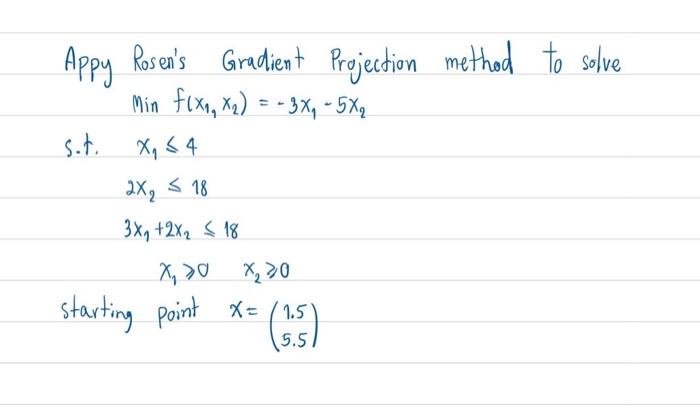 Appy Rosen's Gradient Projection method to solve
Min f(x₁, x₂) = -3x₁ - 5x₂
s.t. x₁ ≤ 4
2x₂ ≤ 18
3x₁ + 2x₂ ≤ 18
x₁ ≥ 0 x₂ ≥ 0
starting point x = (1.5
5.5)